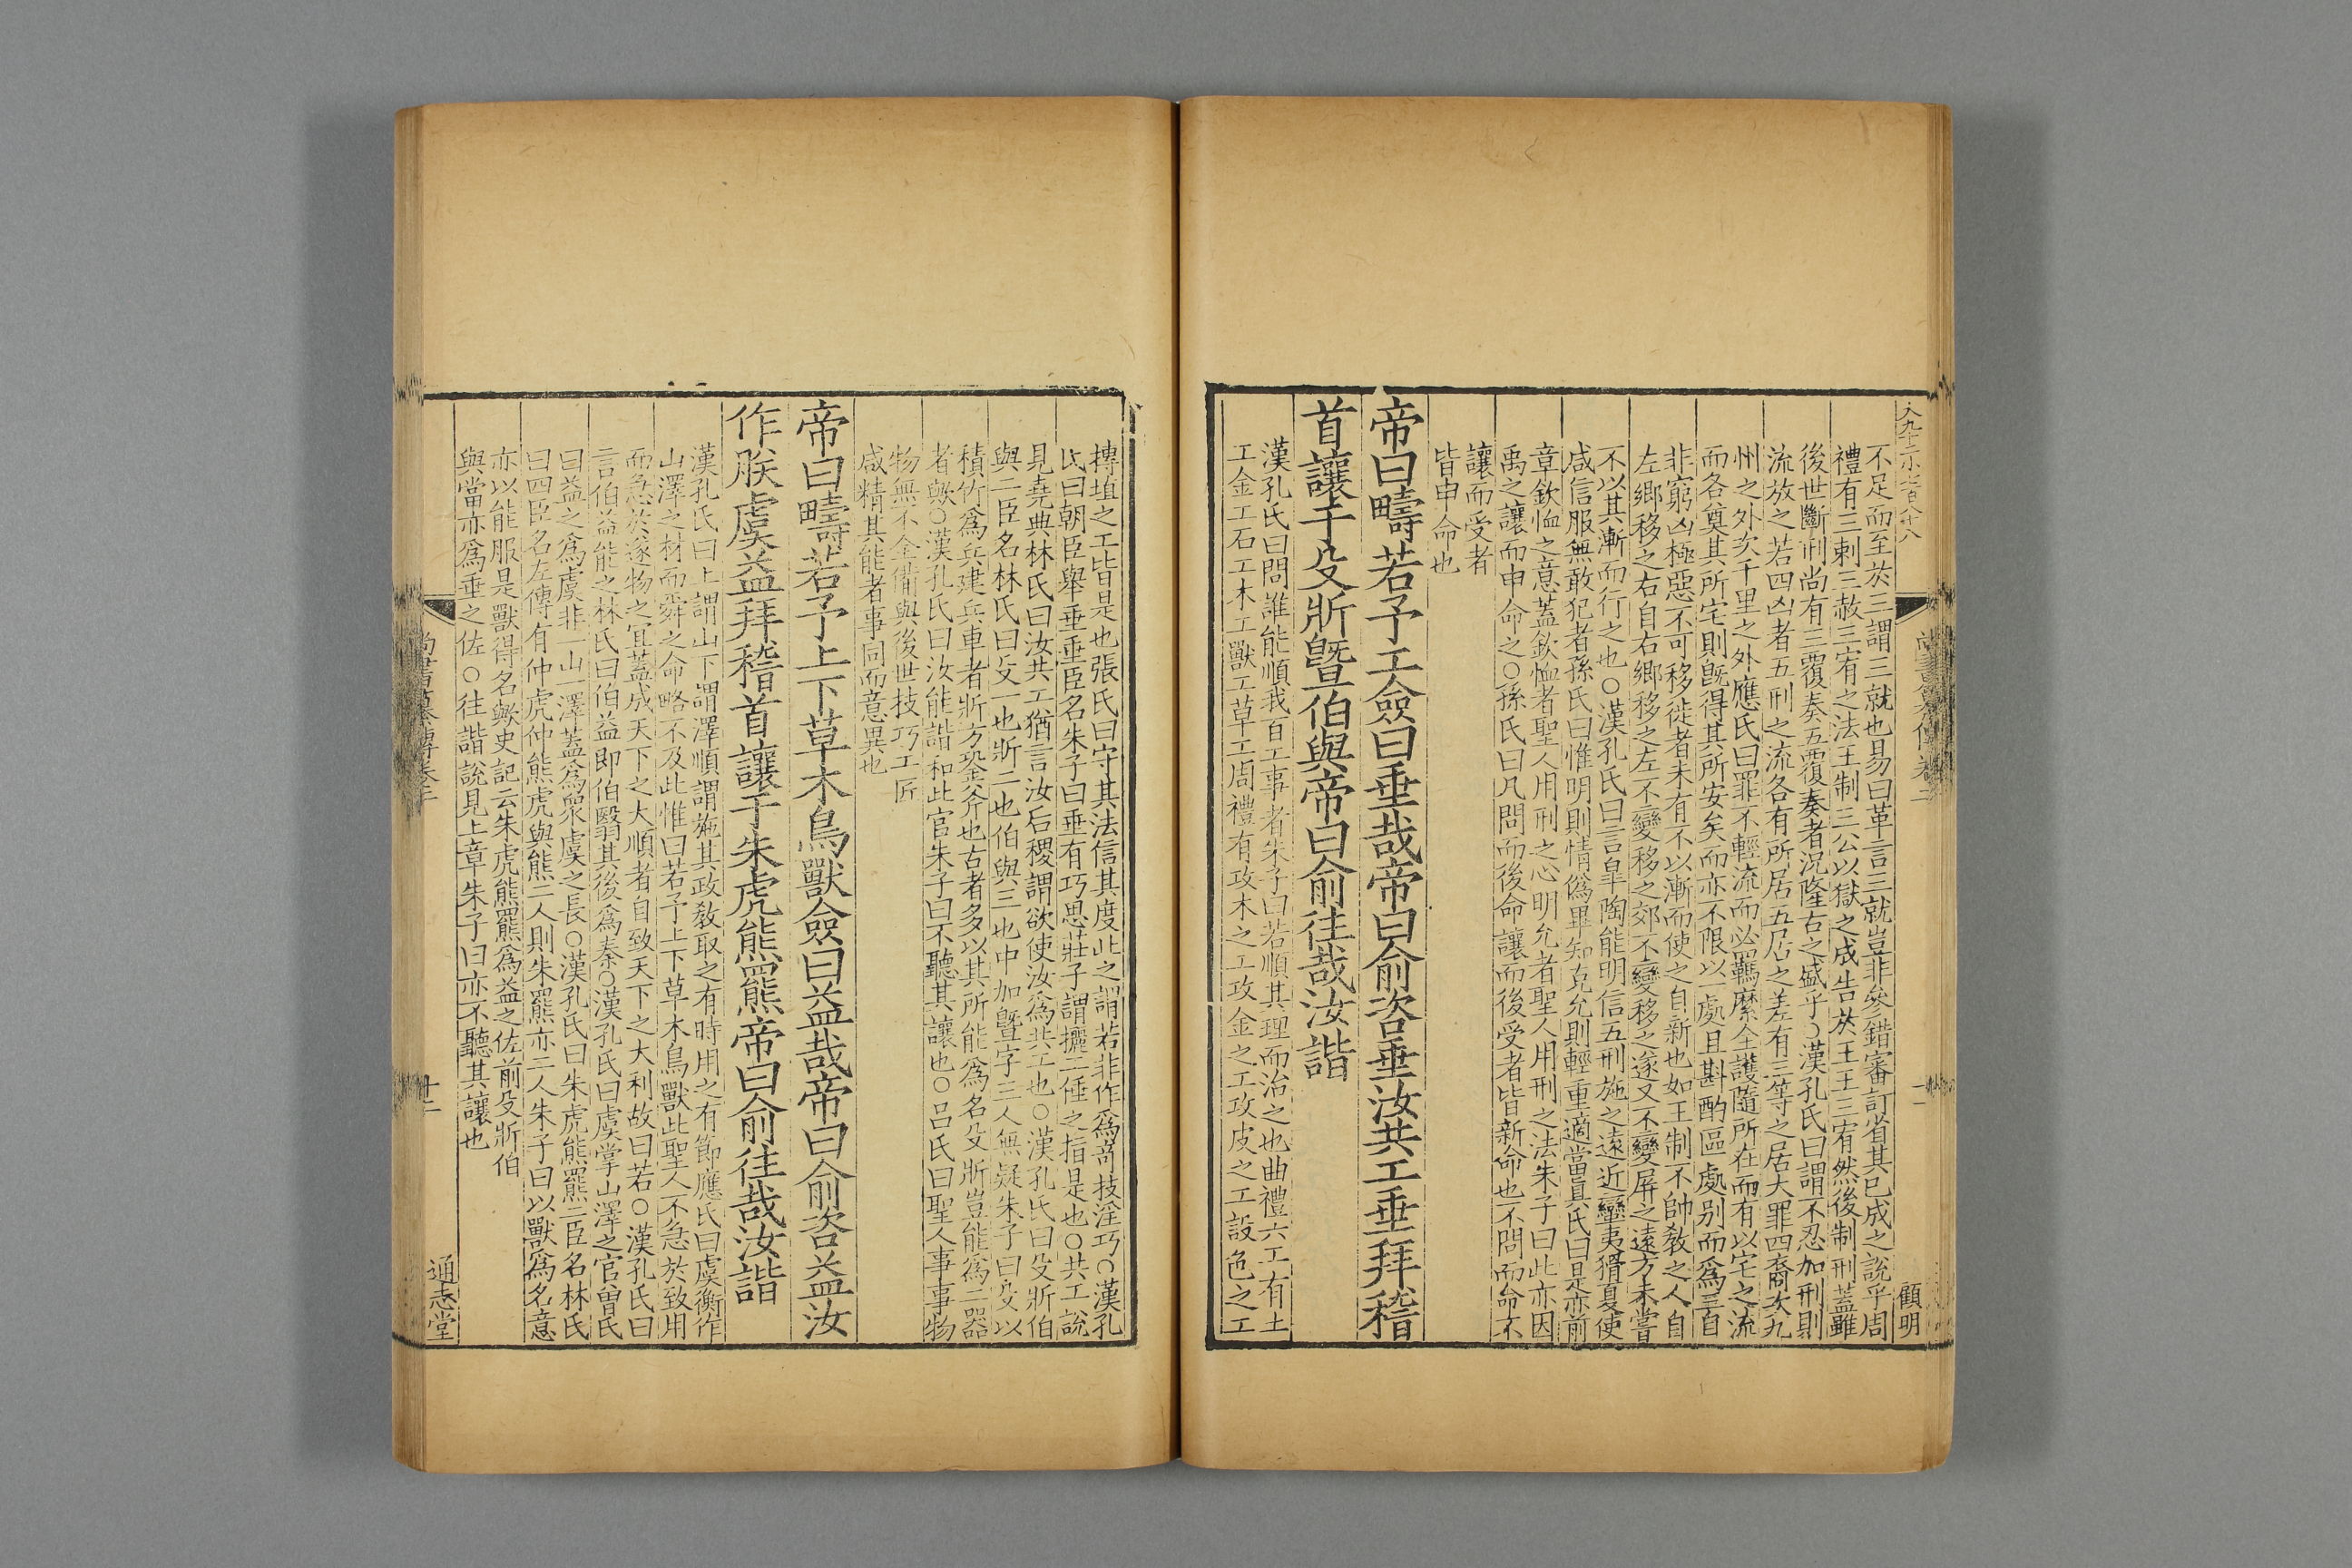 不足而至於三謂三就也易曰革言三就豈非參錯審訂省其已成之說乎周
禮有三刺三赦三宥之法王制三公以獄之成告於王王三宥然後制刑蓋雖
後世斷刑尚有三覆奏五覆奏者況隆古之盛乎○漢孔氏曰謂不忍加刑則
流放之若四凶者五刑之流各有所居五居之差有三等之居大罪四裔次九
州之外次千里之外應氏曰罪不輕流而必羈縻全護隨所在而有以宅之流
而各奠其所宅則旣得其所安矣而亦不限以一處且斟酌區處别而爲三自
非窮凶極惡不可移徙者未有不以漸而使之自新也如王制不帥敎之人自
左鄉移之右自右鄉移之左不變移之郊不變移之遂又不變屏之遠方未嘗
不以其漸而行之也○漢孔氏曰言皐陶能明信五刑施之遠近蠻夷猾夏使
咸信服無敢犯者孫氏曰惟明則情僞畢知克允則輕重適當眞氏曰是亦前
章欽恤之意蓋欽恤者聖人用刑之心明允者聖人用刑之法朱子曰此亦因
禹之讓而申命之○孫氏曰凡問而後命讓而後受者皆新命也不問而命不
讓而受者
皆申命也
帝曰疇若予工僉曰垂哉帝曰俞咨垂汝共工垂拜稽
首讓于殳斨曁伯與帝曰俞往哉汝諧
漢孔氏曰問誰能順我百工事者朱子曰若順其理而治之也曲禮六工有土
工金工石工木工獸工草工周禮有攻木之工攻金之工攻皮之工設色之工
顧明
摶埴之工皆是也張氏曰守其法信其度此之謂若非作爲竒技淫巧○漢孔
氏曰朝臣舉垂垂臣名朱子曰垂有巧思莊子謂攦工倕之指是也○共工說
見堯典林氏曰汝共工猶言汝后稷謂欲使汝爲共工也○漢孔氏曰殳斨伯
與二臣名林氏曰殳一也斨二也伯與三也中加曁字三人無疑朱子曰殳以
積竹爲兵建兵車者斨方銎斧也古者多以其所能爲名殳斨豈能爲二器
者歟○漢孔氏曰汝能諧和此官朱子曰不聽其讓也○呂氏曰聖人事事物
物無不全備與後世技巧工匠
咸精其能者事同而意異也
帝曰疇若予上下草木鳥獸僉曰益哉帝曰俞咨益汝
作朕虞益拜稽首讓于朱虎熊羆帝曰俞往哉汝諧
漢孔氏曰上謂山下謂澤順謂施其政敎取之有時用之有節應氏曰虞衡作
山澤之材而舜之命略不及此惟曰若予上下草木鳥獸此聖人不急於致用
而急於遂物之宜蓋成天下之大順者自致天下之大利故曰若○漢孔氏曰
言伯益能之林氏曰伯益即伯翳其後爲秦○漢孔氏曰虞掌山澤之官曽氏
曰益之爲虞非一山一澤蓋爲眾虞之長○漢孔氏曰朱虎熊羆二臣名林氏
曰四臣名左傳有仲虎仲熊虎與熊二人則朱羆亦二人朱子曰以獸爲名意
亦以能服是獸得名歟史記云朱虎熊羆爲益之佐前殳斨伯
與當亦爲垂之佐○往諧說見上章朱子曰亦不聽其讓也
通志堂